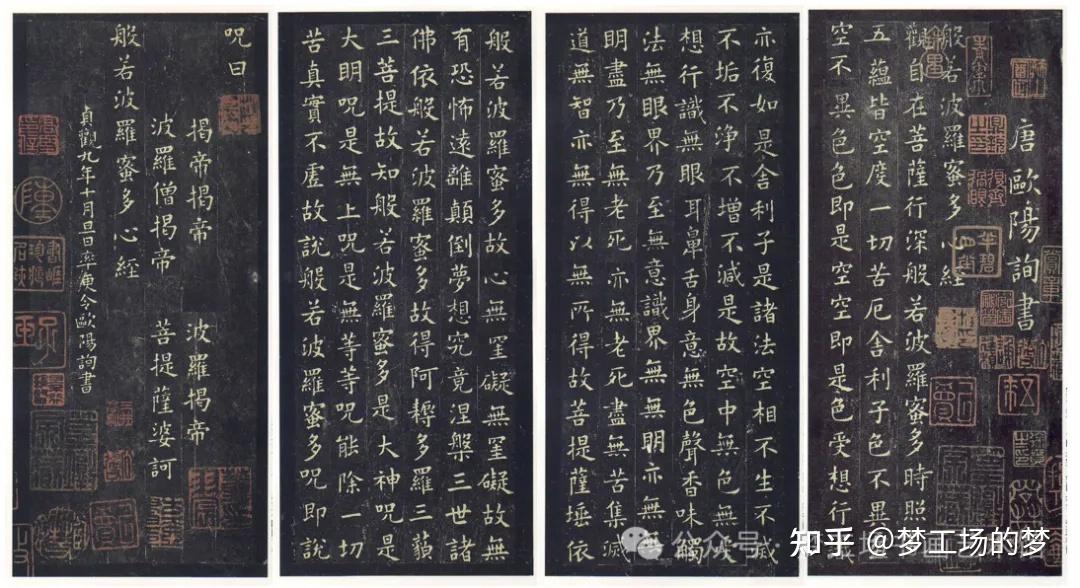 唐歐陽詢書
般若波羅蜜多心經
觀自在菩薩行深般若波羅蜜多時照
五蘊皆空度一切苦厄舍利子色不異
空不異色色即是空空即是色受想行
亦復如是舍利子是諸法空相不生不滅
不垢不淨不增不減是故空中無色無受
想行識無眼耳鼻舌身意無色聲香味觸
法無眼界乃至無意識界無無明亦無無
明盡乃至無老死亦無老死盡無苦集滅
道無智亦無得以無所得故菩提薩埵依
般若波羅蜜多故心無罣礙無罣礙故無
有恐怖遠離顛倒夢想究竟涅槃三世諸
佛依般若波羅蜜多故得阿耨多羅三藐
三菩提故知般若波羅蜜多是大神呪是
大明呪是無上呪是無等等呪能除一切
苦真實不虛故說般若波羅蜜多呪即說
呪曰
揭帝揭帝 波羅揭帝
波羅僧揭帝 菩提薩婆訶
般若波羅蜜多心經
貞觀九年十月旦日率更令歐陽詢書
公众号
知乎 @梦工场的梦